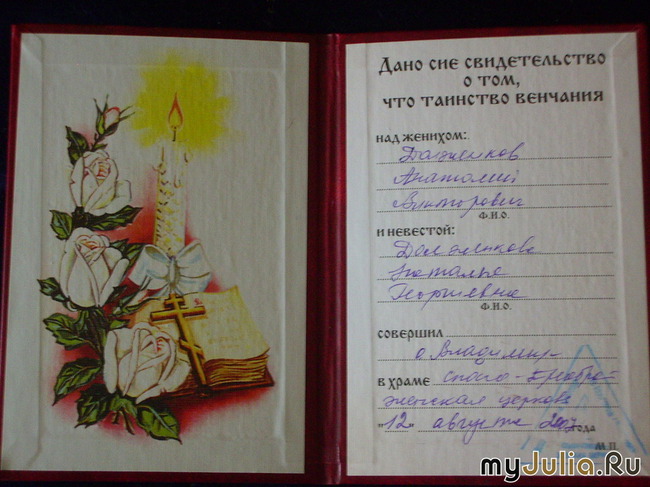 Дано сие свидетельство
о том,
что таинство венчания
над женихом:
Анатолий
Викторович
Ф.И.О.
и невестой:
Наталья
Георгиевна
Ф.И.О.
совершил
о Владимир
в храме Спасо-Преобра-
женская церковь
"12" августа 2007 года
М.П.
myJulia.Ru